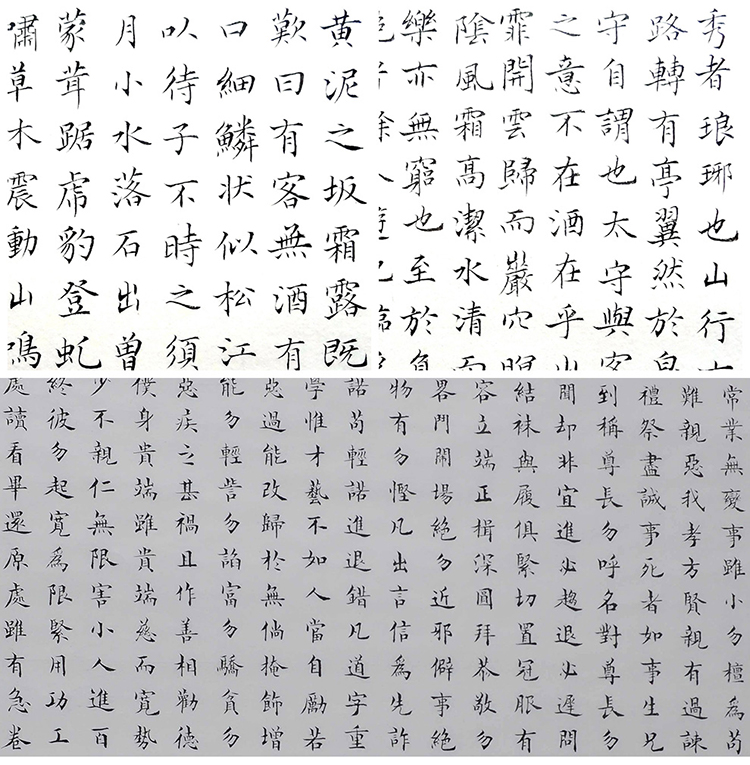 黄泥之坂霜露既
歎曰有客無酒有
口細鱗状似松江
以待子不時之須
月小水落石出曽
蒙茸踞虎豹登虬
嘯草木震動山鳴
秀者琅琊也山行
路轉有亭翼然於泉
守自謂也太守與客
之意不在酒在乎山
霏開雲歸而巖穴暝
陰風霜高潔水清而
樂亦無窮也至於負
常業無變事雖小勿檀為苟
難親惡我孝方賢親有過諫
禮祭盡誠事死者如事生兄
到稱尊長勿呼名對尊長勿
聞却非宜進必趨退必遲問
結袜與履俱緊切置冠服有
容立端正揖深圓拜恭敬勿
畧門鬧場絕勿近邪僻事絕
物有勿慳凡出言信為先詐
諾苟輕諾進退錯凡道字重
學惟才藝不如人當自勵若
惡過能改歸於無倘掩飾增
能勿輕訾勿諂富勿驕貧勿
惡疾之甚禍且作善相勸德
僕身貴端雖貴端慈而寬勢
少不親仁無限害小人進百
終彼勿起寬為限緊用功工
處讀看畢還原處雖有急卷